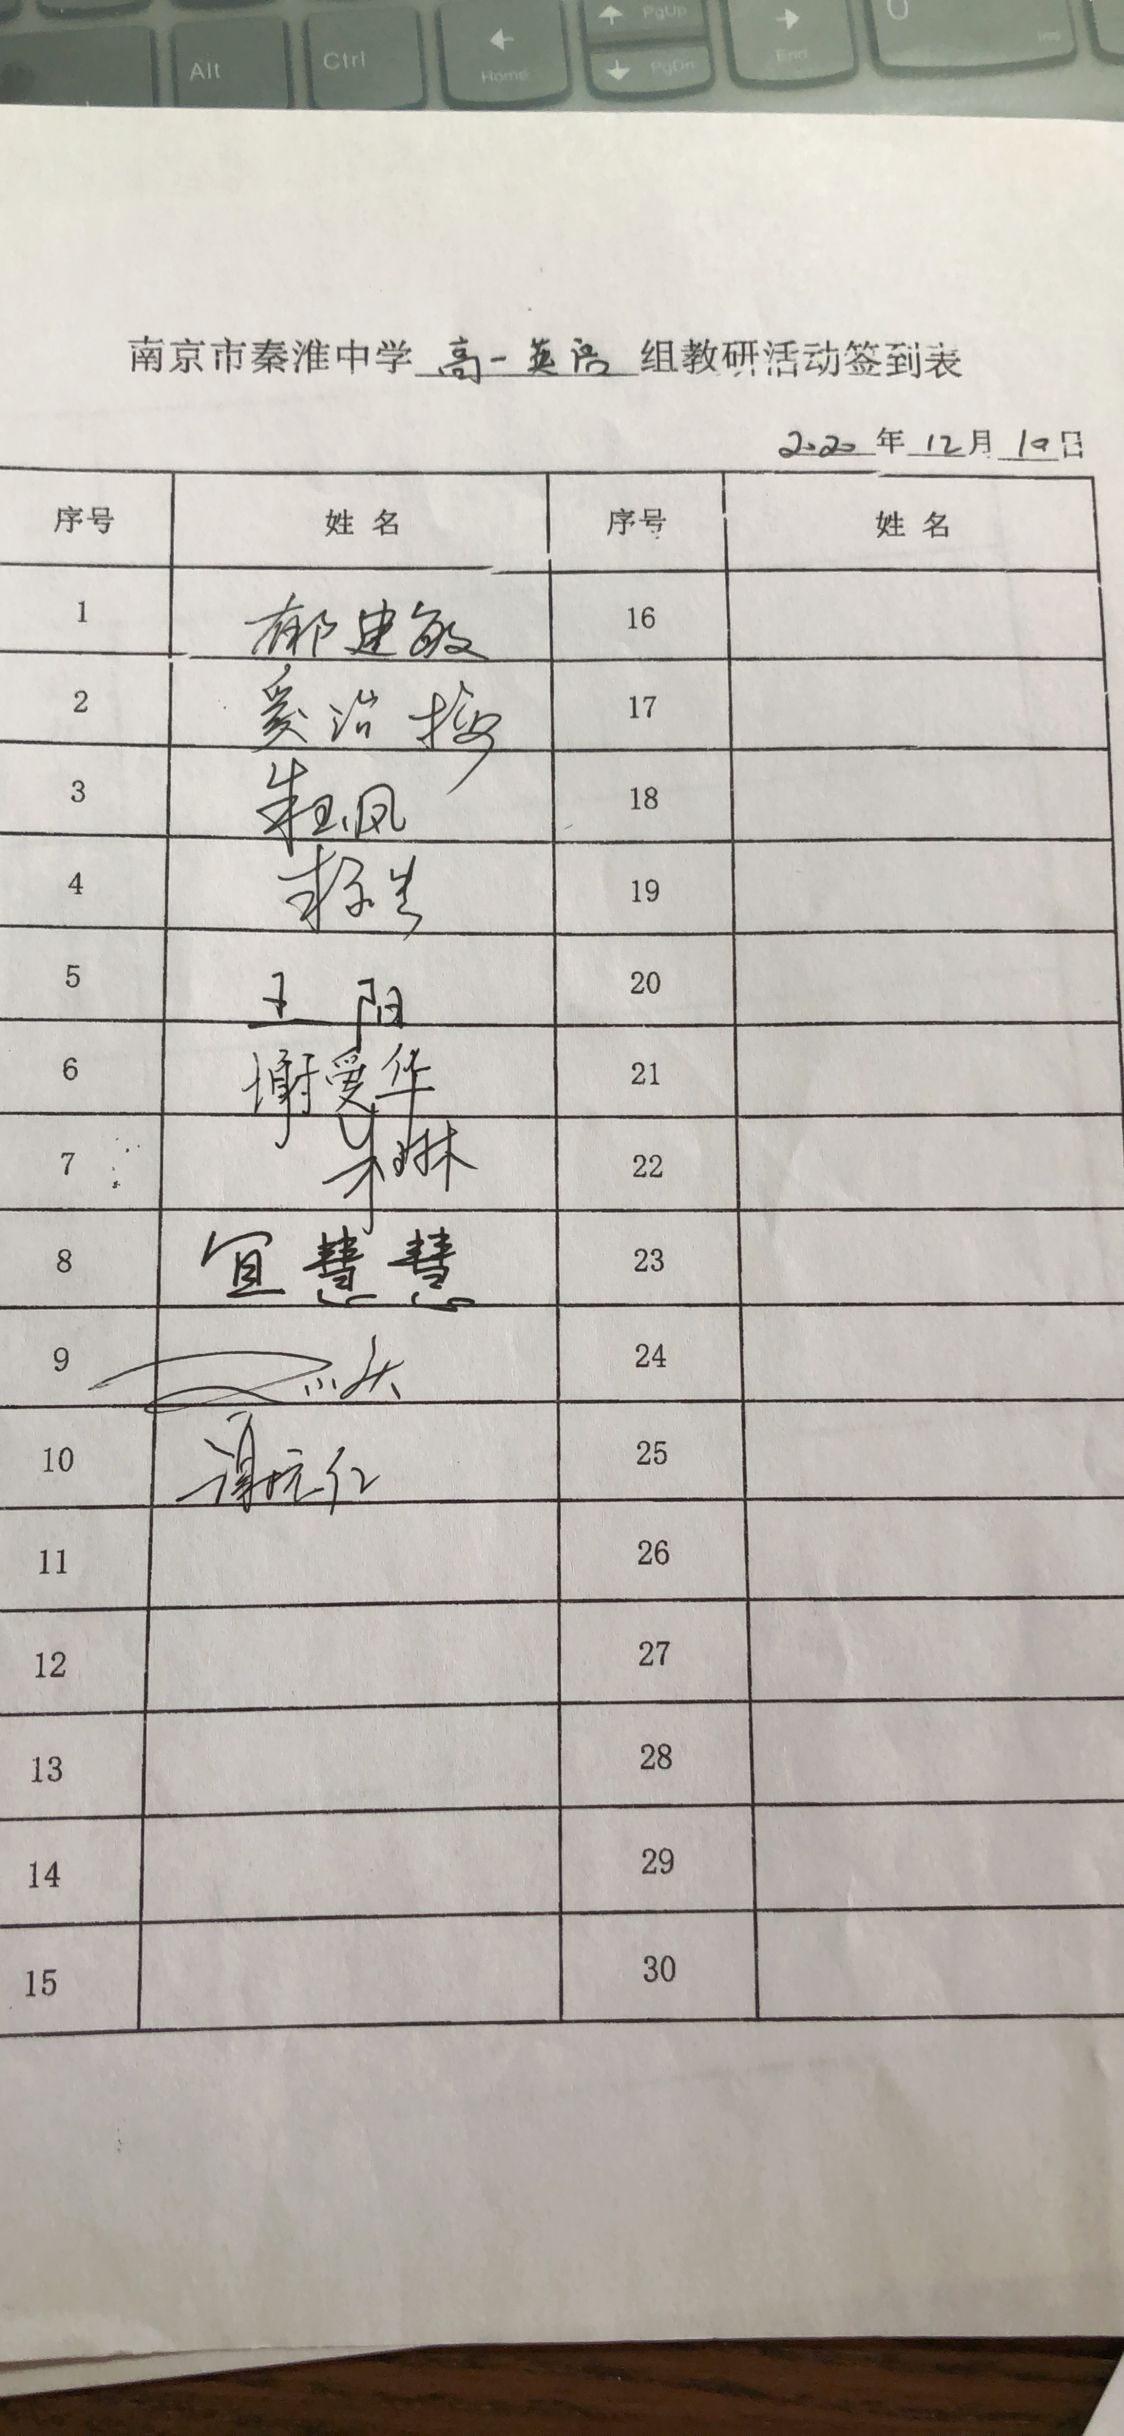 Alt Ctrl Home PgUp PgDn End 0 Ins
南京市秦淮中学 高一英语 组教研活动签到表
2020 年 12 月 10 日
序号 姓 名 序号 姓 名
1 郁建敏 16
2 17
3 朱玉凤 18
4 19
5 王阳 20
6 谢爱华 21
7 朱琳 22
8 宣慧慧 23
9 24
10 25
11 26
12 27
13 28
14 29
15 30